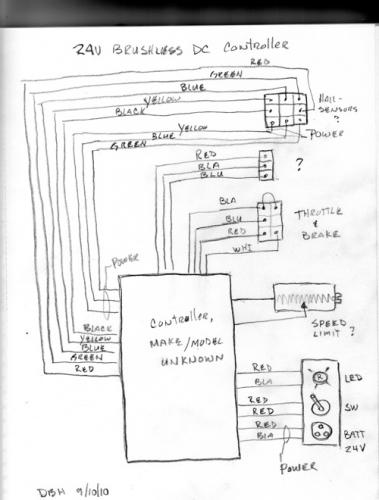 24V BRUSHLESS DC CONTROLLER
RED
GREEN
BLUE
YELLOW
BLACK
YELLOW
BLUE
GREEN
HALL-
SENSORS
?
POWER
RED
BLA
BLU
?
BLA
BLU
RED
WHI
THROTTLE
&
BRAKE
POWER
CONTROLLER,
MAKE/MODEL
UNKNOWN
SPEED
LIMIT ?
BLACK
YELLOW
BLUE
GREEN
RED
RED
BLA
R
LED
RED
RED
SW
RED
BLA
BATT
24V
POWER
DBH 9/10/10